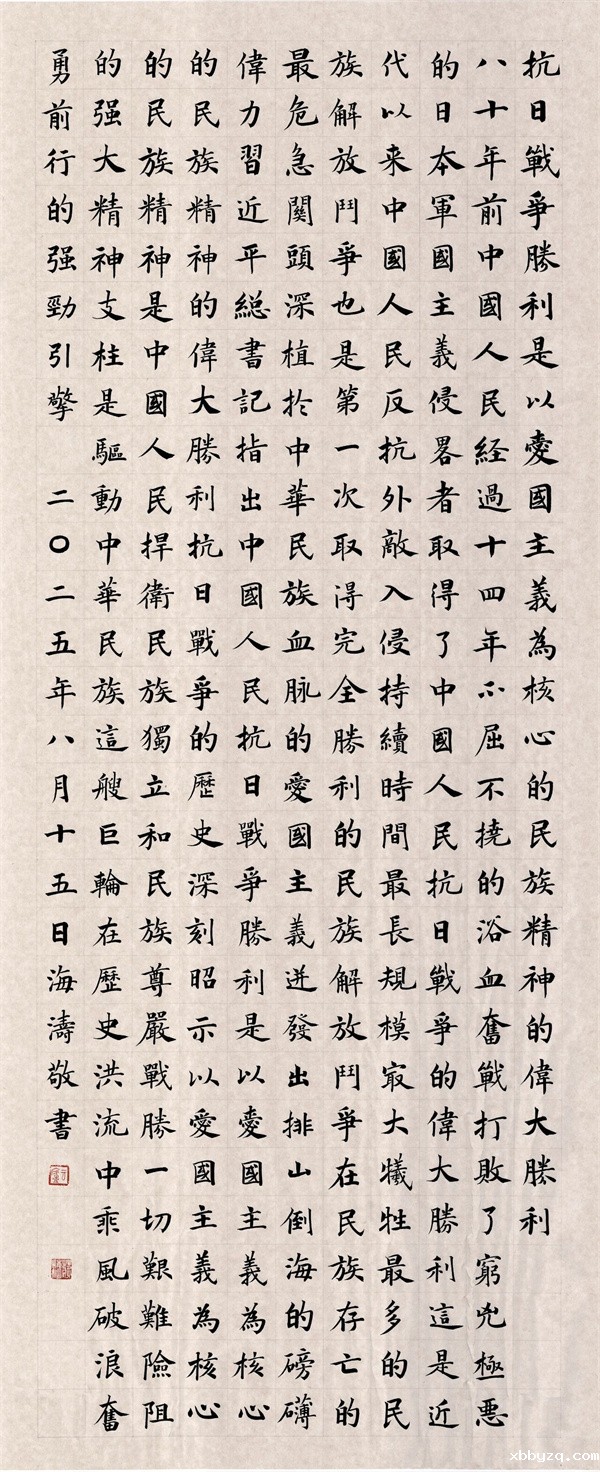 抗日戰爭勝利是以愛國主義為核心的民族精神的偉大勝利
八十年前中國人民経過十四年不屈不撓的浴血奮戰打敗了窮兇極悪
的日本軍國主義侵畧者取得了中國人民抗日戰爭的偉大勝利這是近
代以来中國人民反抗外敵入侵持續時間最長規模㝡大犧牲最多的民
族解放鬥爭也是第一次取得完全勝利的民族解放鬥爭在民族存亡的
最危急關頭深植扵中華民族血脉的愛國主義迸發出排山倒海的磅礴
偉力習近平總書記指出中國人民抗日戰爭勝利是以愛國主義為核心
的民族精神的偉大勝利抗日戰爭的歷史深刻昭示以愛國主義為核心
的民族精神是中國人民捍衛民族獨立和民族尊嚴戰勝一切艱難險阻
的强大精神支柱是驅動中華民族這艘巨輪在歷史洪流中乘風破浪奮
勇前行的强勁引擎 二〇二五年八月十五日海濤敬書
xbbyzq.com